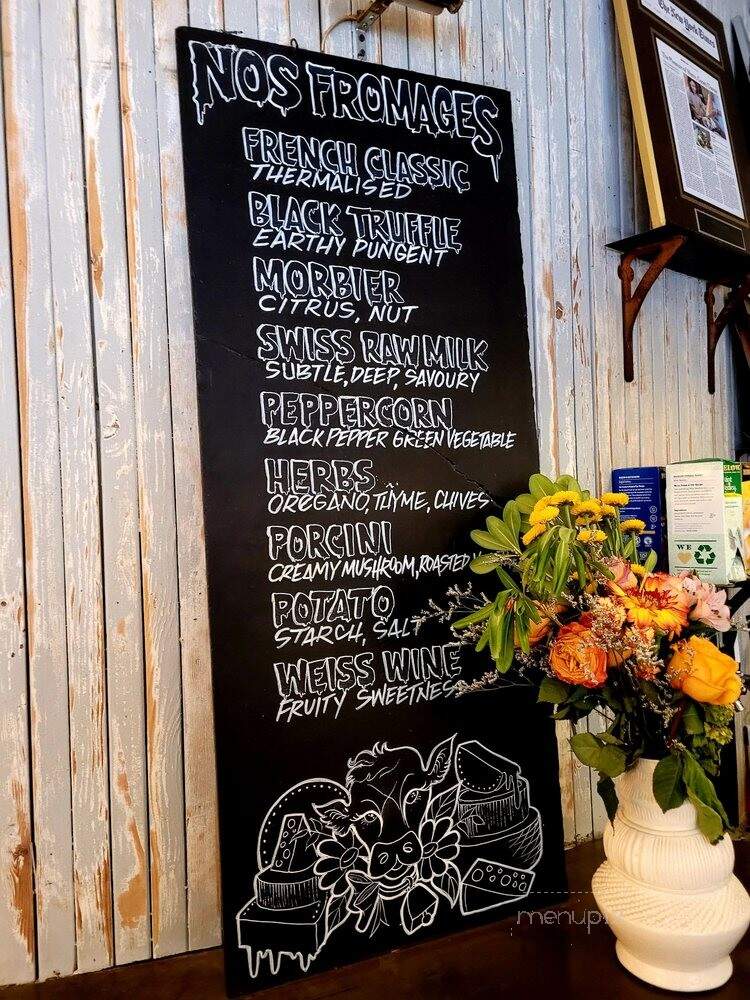 NOS FROMAGES
FRENCH CLASSIC
THERMALISED
BLACK TRUFFLE
EARTHY PUNGENT
MORBIER
CITRUS, NUT
SWISS RAW MILK
SUBTLE, DEEP, SAVOURY
PEPPERCORN
BLACK PEPPER GREEN VEGETABLE
HERBS
OREGANO, THYME, CHIVES
PORCINI
CREAMY MUSHROOM, ROASTED
POTATO
STARCH, SALT
WEISS WINE
FRUITY SWEETNESS
The New York Times
WE
menup